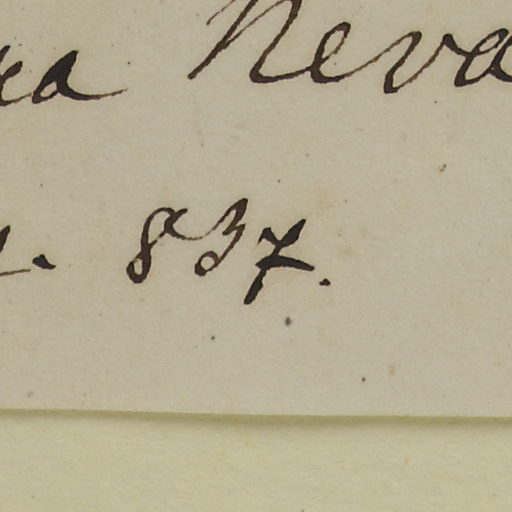 ra Neva
. 837.